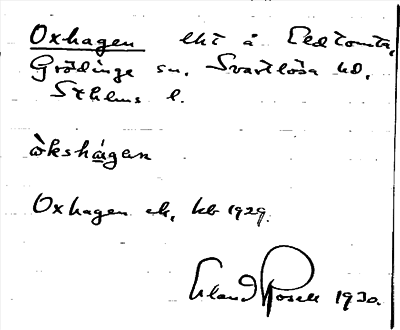 Oxhagen lht å Eledtomta,
Grödinge sn. Svartlösa hd.
Sthlms l.
òkshágan
Oxhagen ek, kb 1929.
Erland Rosell 1930.